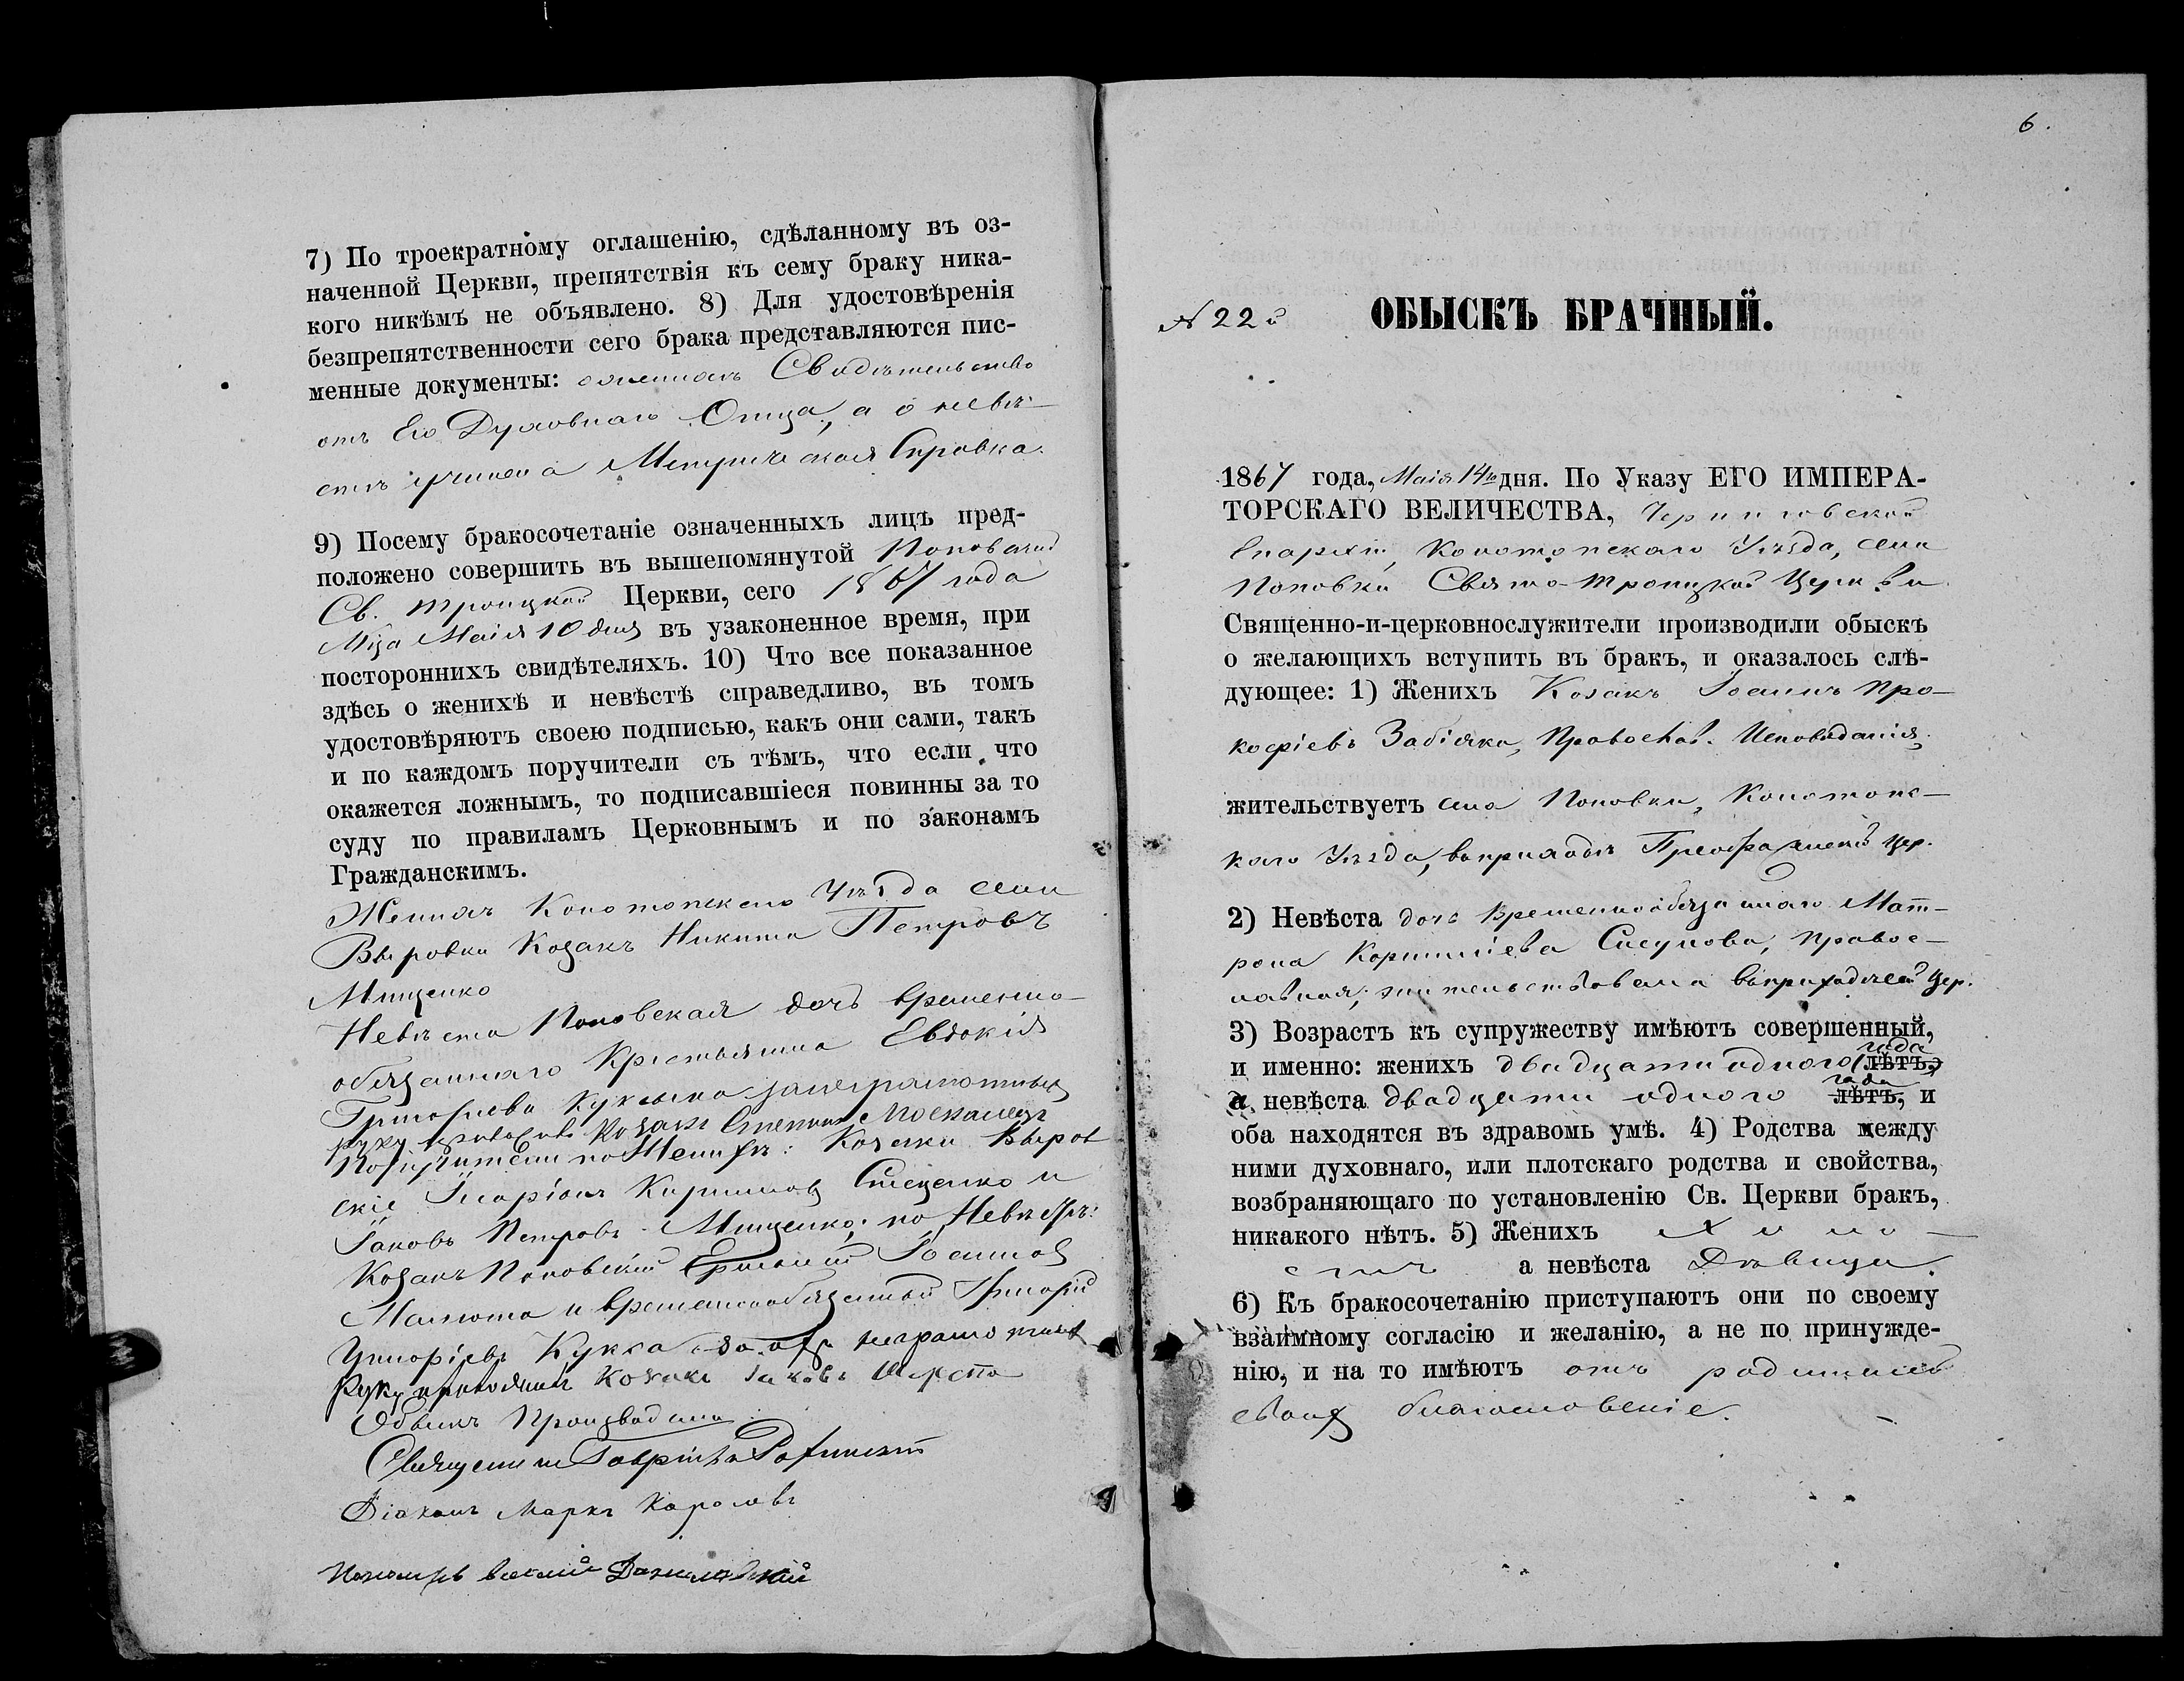 7) По троекратному оглашенію, сдѣланному въ оз-
наченной Церкви, препятствія къ сему браку ника-
кого никѣмъ не объявлено. 8) Для удостовѣренія
безпрепятственности сего брака представляются пис-
менные документы: о женихѣ Свидѣтельство
отъ Его Духовнаго Отца, а о невѣ-
стѣ учинена Метрическая Справка.
9) Посему бракосочетаніе означенныхъ лицъ пред-
положено совершить въ вышепомянутой Поповской
Св. Троицкой Церкви, сего 1867 года
Мца Маія 10 дня въ узаконенное время, при
постороннихъ свидѣтеляхъ. 10) Что все показанное
здѣсь о женихѣ и невѣстѣ справедливо, въ томъ
удостовѣряютъ своею подписью, какъ они сами, такъ
и по каждомъ поручители съ тѣмъ, что если что
окажется ложнымъ, то подписавшіеся повинны за то
суду по правиламъ Церковнымъ и по законамъ
Гражданскимъ.
Женихъ Конотопскаго Уѣзда села
Выровки Козакъ Никита Петровъ
Мищенко
Невѣста Поповская дочь временно-
обязаннаго Крестьянина Евдокія
Григоріева
руку Козакъ Стефанъ Москалецъ
Поручители по Женихѣ: Козаки Выров
скіе Иларіонъ Кириловъ Стеценко и
Іаковъ Петровъ Мищенко; по Невѣстѣ:
Козакъ Поповскій Іоанновъ
и временнообязанный Григорій
Кукса за неграмотныхъ
Руку приложилъ Козакъ Іаковъ
Обыскъ Производили
Священникъ Гавріилъ
Діаконъ Маркъ
Пономарь
6.
№ 22й
ОБЫСКЪ БРАЧНЫЙ.
1867 года, Маія 14го дня. По Указу ЕГО ИМПЕРА-
ТОРСКАГО ВЕЛИЧЕСТВА, Черниговской
Епархіи, Конотопскаго Уѣзда, села
Поповки Свято-Троицкой Церкви
Священно-и-церковнослужители производили обыскъ
о желающихъ вступить въ бракъ, и оказалось слѣ-
дующее: 1) Женихъ Козакъ Іоаннъ Про-
кофіевъ Забіяка, Православ. Исповѣданія,
жительствуетъ села Поповки, Конотопс-
каго Уѣзда, въ приходѣ Преображенс Цер.
2) Невѣста дочь временнообязаннаго Мат-
рона Корниліева Сисунова, правос-
лавная; жительствовала въ приходѣ сей Цер.
3) Возрастъ къ супружеству имѣютъ совершенный,
и именно: женихъ двадцати одного года лѣтъ,
а невѣста двадцати одного года лѣтъ, и
оба находятся въ здравомъ умѣ. 4) Родства между
ними духовнаго, или плотскаго родства и свойства,
возбраняющаго по установленію Св. Церкви бракъ,
никакого нѣтъ. 5) Женихъ Холо-
стъ а невѣста Дѣвица.
6) Къ бракосочетанію приступаютъ они по своему
взаимному согласію и желанію, а не по принужде-
нію, и на то имѣютъ отъ родителей
своихъ благословеніе.